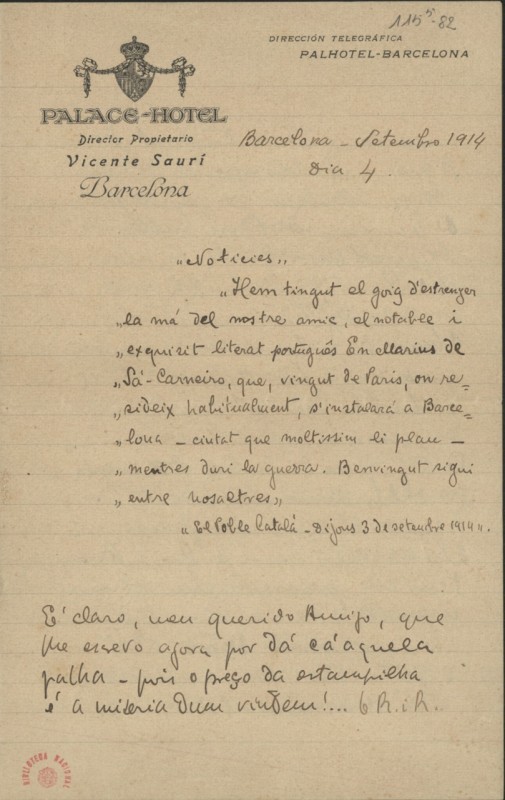 115⁵-82
DIRECCIÓN TELEGRÁFICA
PALHOTEL-BARCELONA
PALACE-HOTEL
Director Propietario
Vicente Saurí
Barcelona
Barcelona - Setembro 1914
Dia 4.
"Noticies"
"Hem tingut el goig d'estrenyer
"la má del nostre amic, el notable i
"exquisit literat português En Marius de
"Sá-Carneiro, que, vingut de Paris, on re-
"sideix habitualment, s'instalará a Barce-
"lona - ciutat que moltissim li plau -
"mentres duri la guerra. Benvingut sigui
"entre nosaltres"
"El Poble Catalá - Dijous 3 de setembre 1914".
E' claro, meu querido Amigo, que
lhe escrevo agora por dá cá aquela
palha - pois o preço da estampilha
é a miseria dum vintem!...
BIBLIOTECA NACIONAL